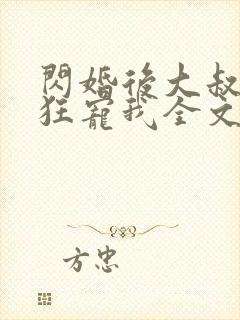 閃婚後大叔
狂寵我全文
方忠